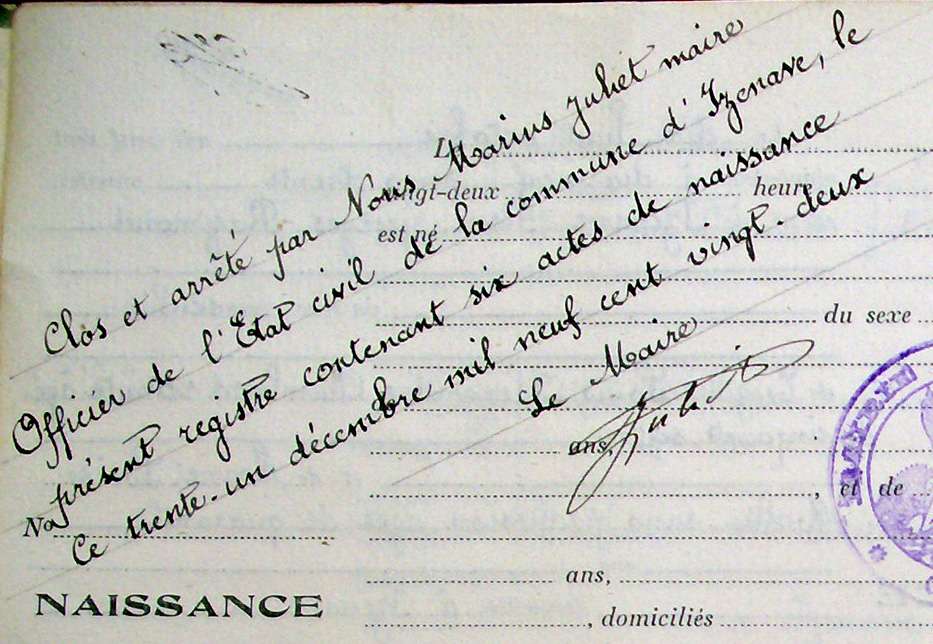 Clos et arrêté par Nous Marius Juhet maire
Officier de l'Etat civil de la commune d'Izenave, le
présent registre contenant six actes de naissance
Ce trente-un décembre mil neuf cent vingt-deux
Le Maire
Juhet
L
vingt-deux heure
est né
du sexe
ans,
, et de
No
ans,
NAISSANCE
, domiciliés
MAIRIE